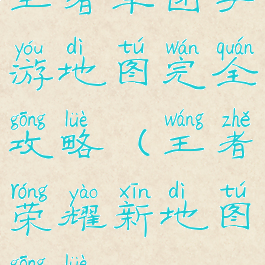 yóu dì tú wán quán
游地图完全
gōng lüè wáng zhě
攻略（王者
róng yào xīn dì tú
荣耀新地图
gōng lüè